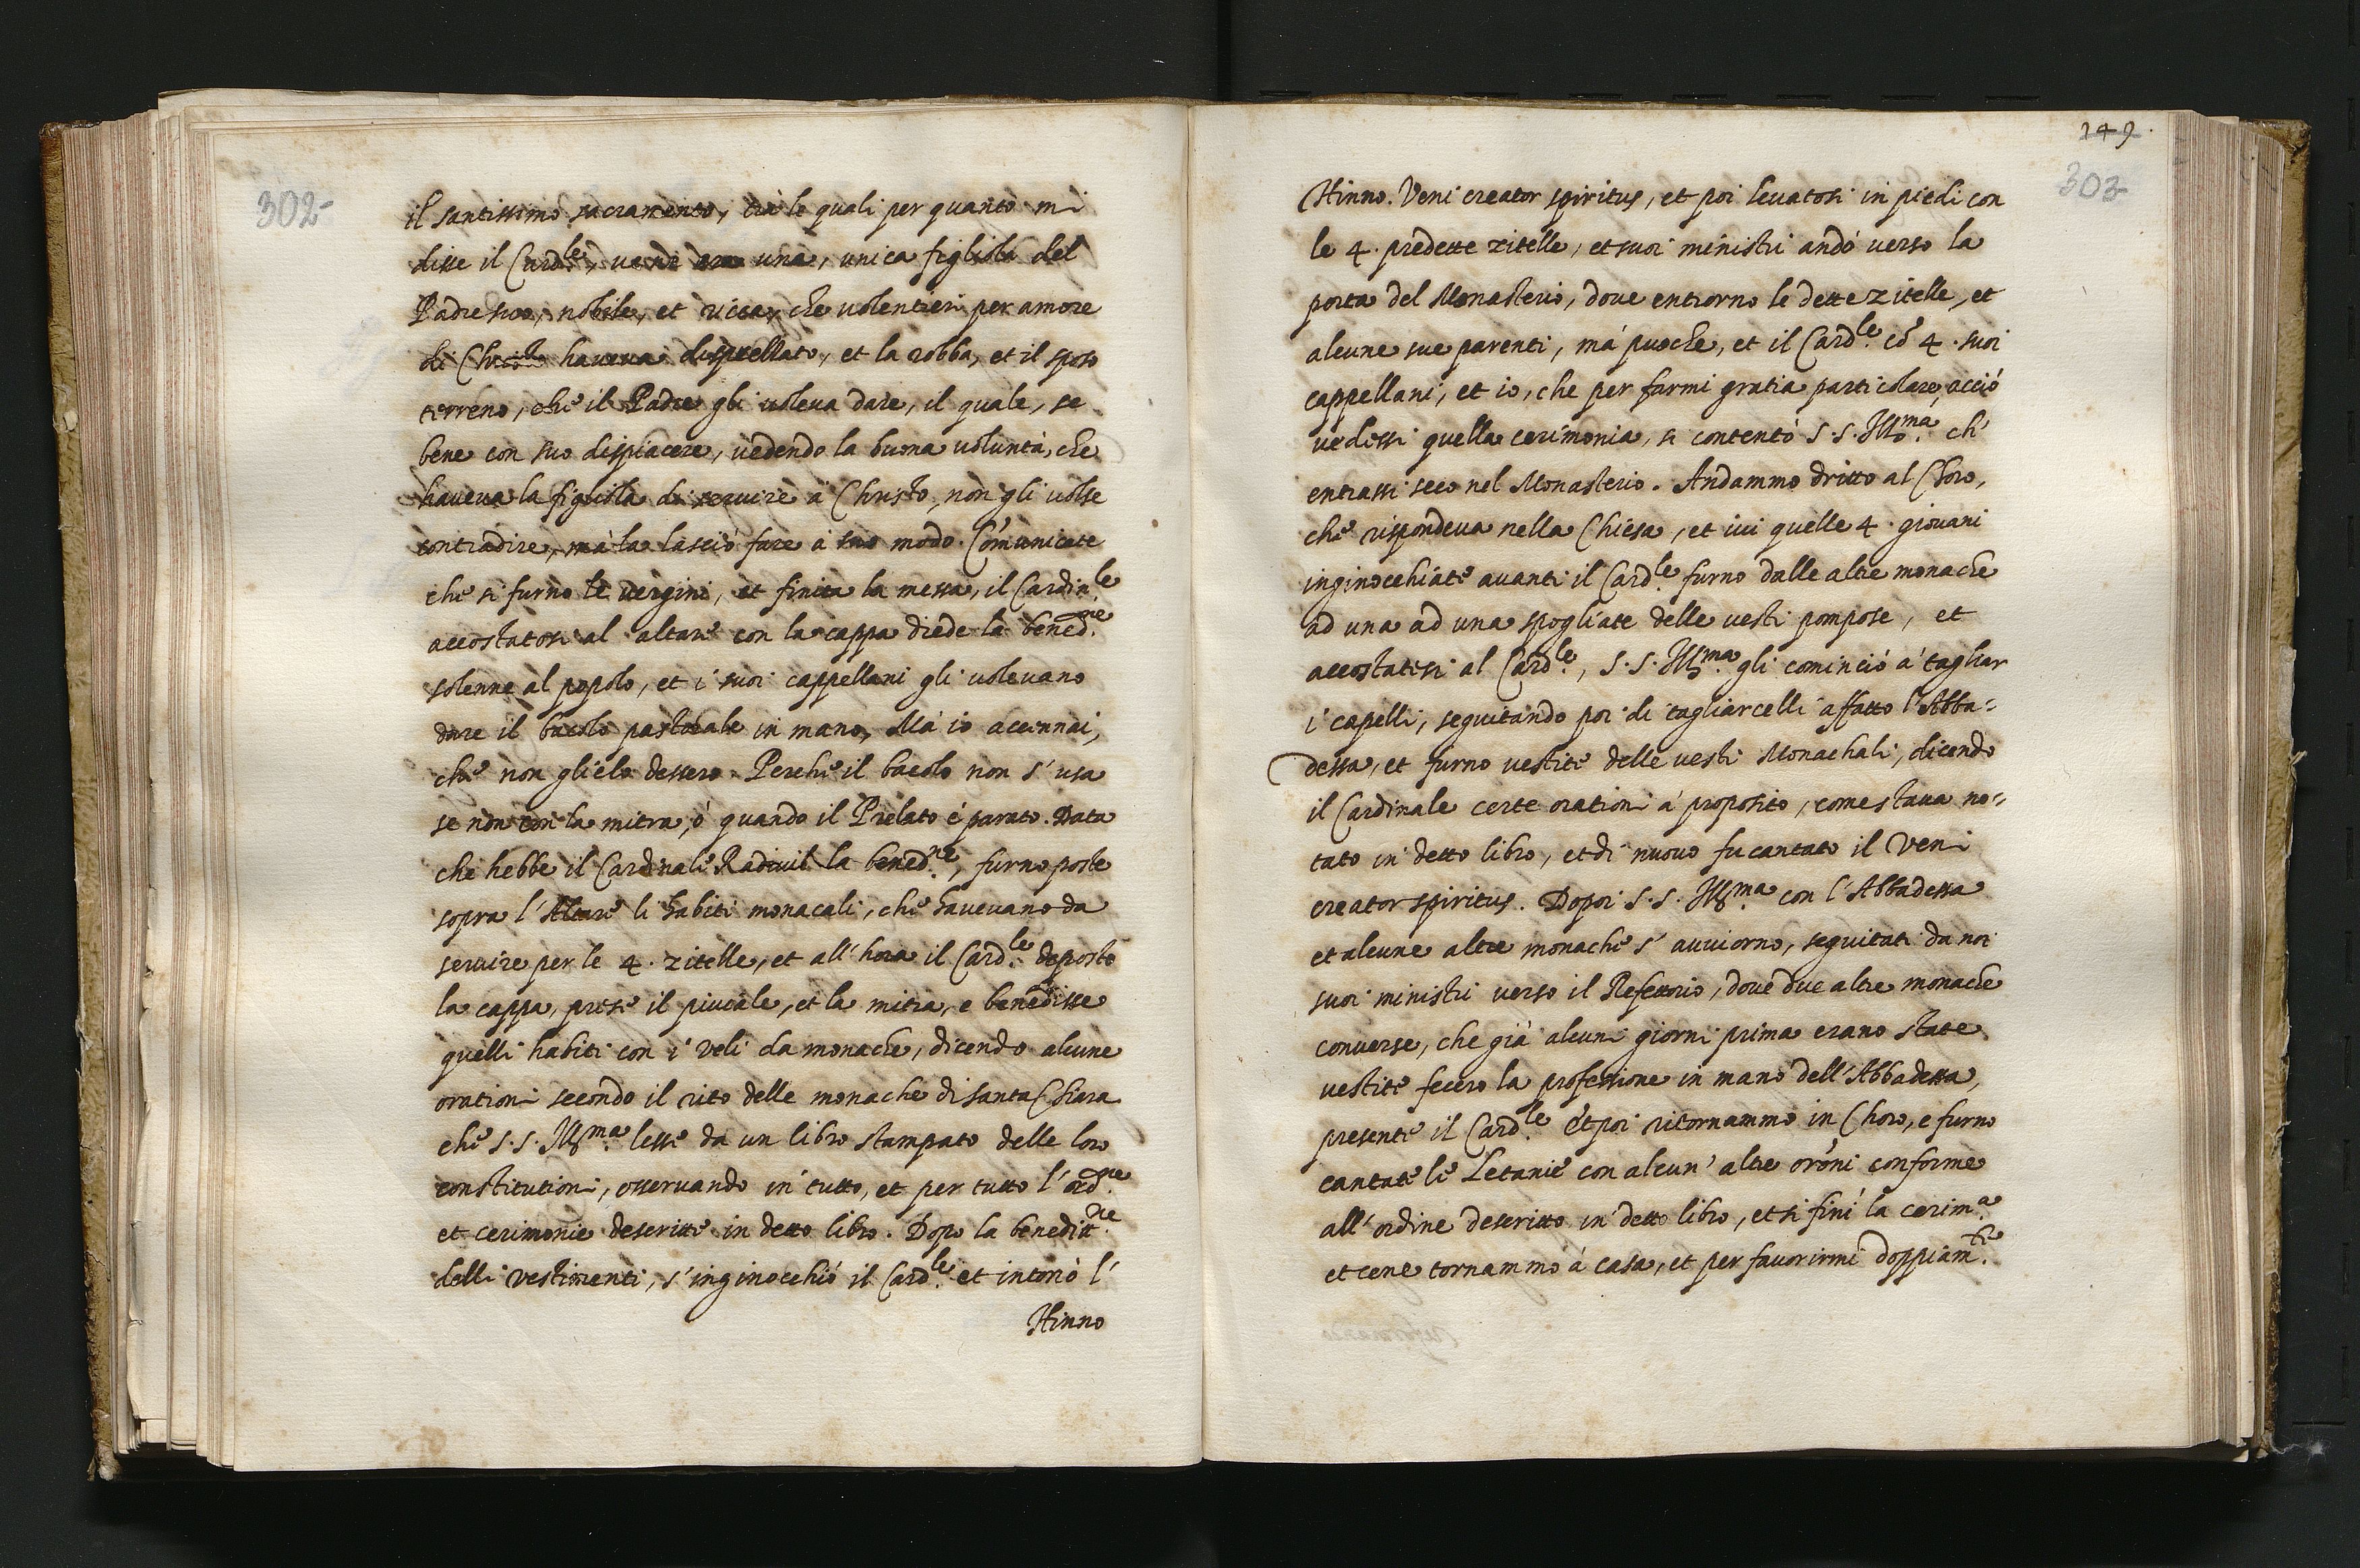 302
il santissimo sacramento, trà le quali per quanto mi
disse il Card.le, ve ne era una, unica figliola del
Padre suo, nobile, et ricca, che volentieri per amore
di Christo haveva disprellato, et la robba, et il sposo
terreno, che il Padre gli voleva dare, il quale, se
bene con suo dispiacere, vedendo la buona voluntà, che
haveva la figliola di servire à Christo, non gli volse
contradire, mà la lasciò fare à suo modo. Com̃unicate
che si furno le vergini, et finita la messa, il Cardin.le
accostatosi al altare con la cappa diede la bened.ne
solenne al popolo, et i suoi cappellani gli volevano
dare il bacolo pastorale in mano, Mà io accennai,
che non glielo dessero. Perche il bacolo non s' usa
se non con la mitra, ò quando il Prelato è parato. Data
che hebbe il Cardinale Radivil la bened.ne, furno poste
sopra l' Altare li habiti monacali, che havevano da
servire per le 4. zitelle, et all' hora il Card.le deposto
la cappa, prese il piviale, et la mitra, e benedisse
quelli habiti con i veli da monache, dicendo alcune
orationi secondo il rito delle monache di santa Chiara
che S. S. Ill.ma lesse da un libro stampato delle loro
constitutioni, osservando in tutto, et per tutto l' ord.ne
et cerimonie descritte in detto libro. Dopo la beneditt.ne
delli vestimenti, s' inginocchiò il Card.le et intonò l'
Hinno
149.
303
Hinno. Veni creator spiritus, et poi levatosi in piedi con
le 4. predette zitelle, et suoi ministri andò verso la
porta del Monasterio, dove entrorno le dette zitelle, et
alcune sue parenti, mà puoche, et il Card.le cõ 4. suoi
cappellani, et io, che per farmi gratia particolare, acciò
vedessi quella cerimonia, si contentò S. S. Ill.ma ch'
entrassi seco nel Monasterio. Andammo dritto al Choro,
che rispondeva nella Chiesa, et ivi quelle 4. giovani
inginocchiate avanti il Card.le furno dalle altre monache
ad una ad una spogliate delle vesti pompose, et
accostatesi al Card.le, S. S. Ill.ma gli cominciò à tagliar
i capelli, seguitando poi di tagliarcelli affatto l' Abba=
dessa, et furno vestite delle vesti Monachali, dicendo
il Cardinale certe orationi à proposito, come stava no=
tato in detto libro, et di nuovo fu cantato il Veni
creator spiritus. Dopoi S. S. Ill.ma con l' Abbadessa
et alcune altre monache s' avviorno, seguitati da noi
suoi ministri verso il Refettorio, dove due altre monache
converse, che già alcuni giorni prima erano state
vestite fecero la professione in mano dell' Abbadessa,
presente il Card.le Et poi ritornammo in Choro, e furno
cantate le Letanie con alcun' altre orõni conforme
all' ordine descritto in detto libro, et si finì la cerim.a
et cene tornammo à casa, et per favorirmi doppiam.te